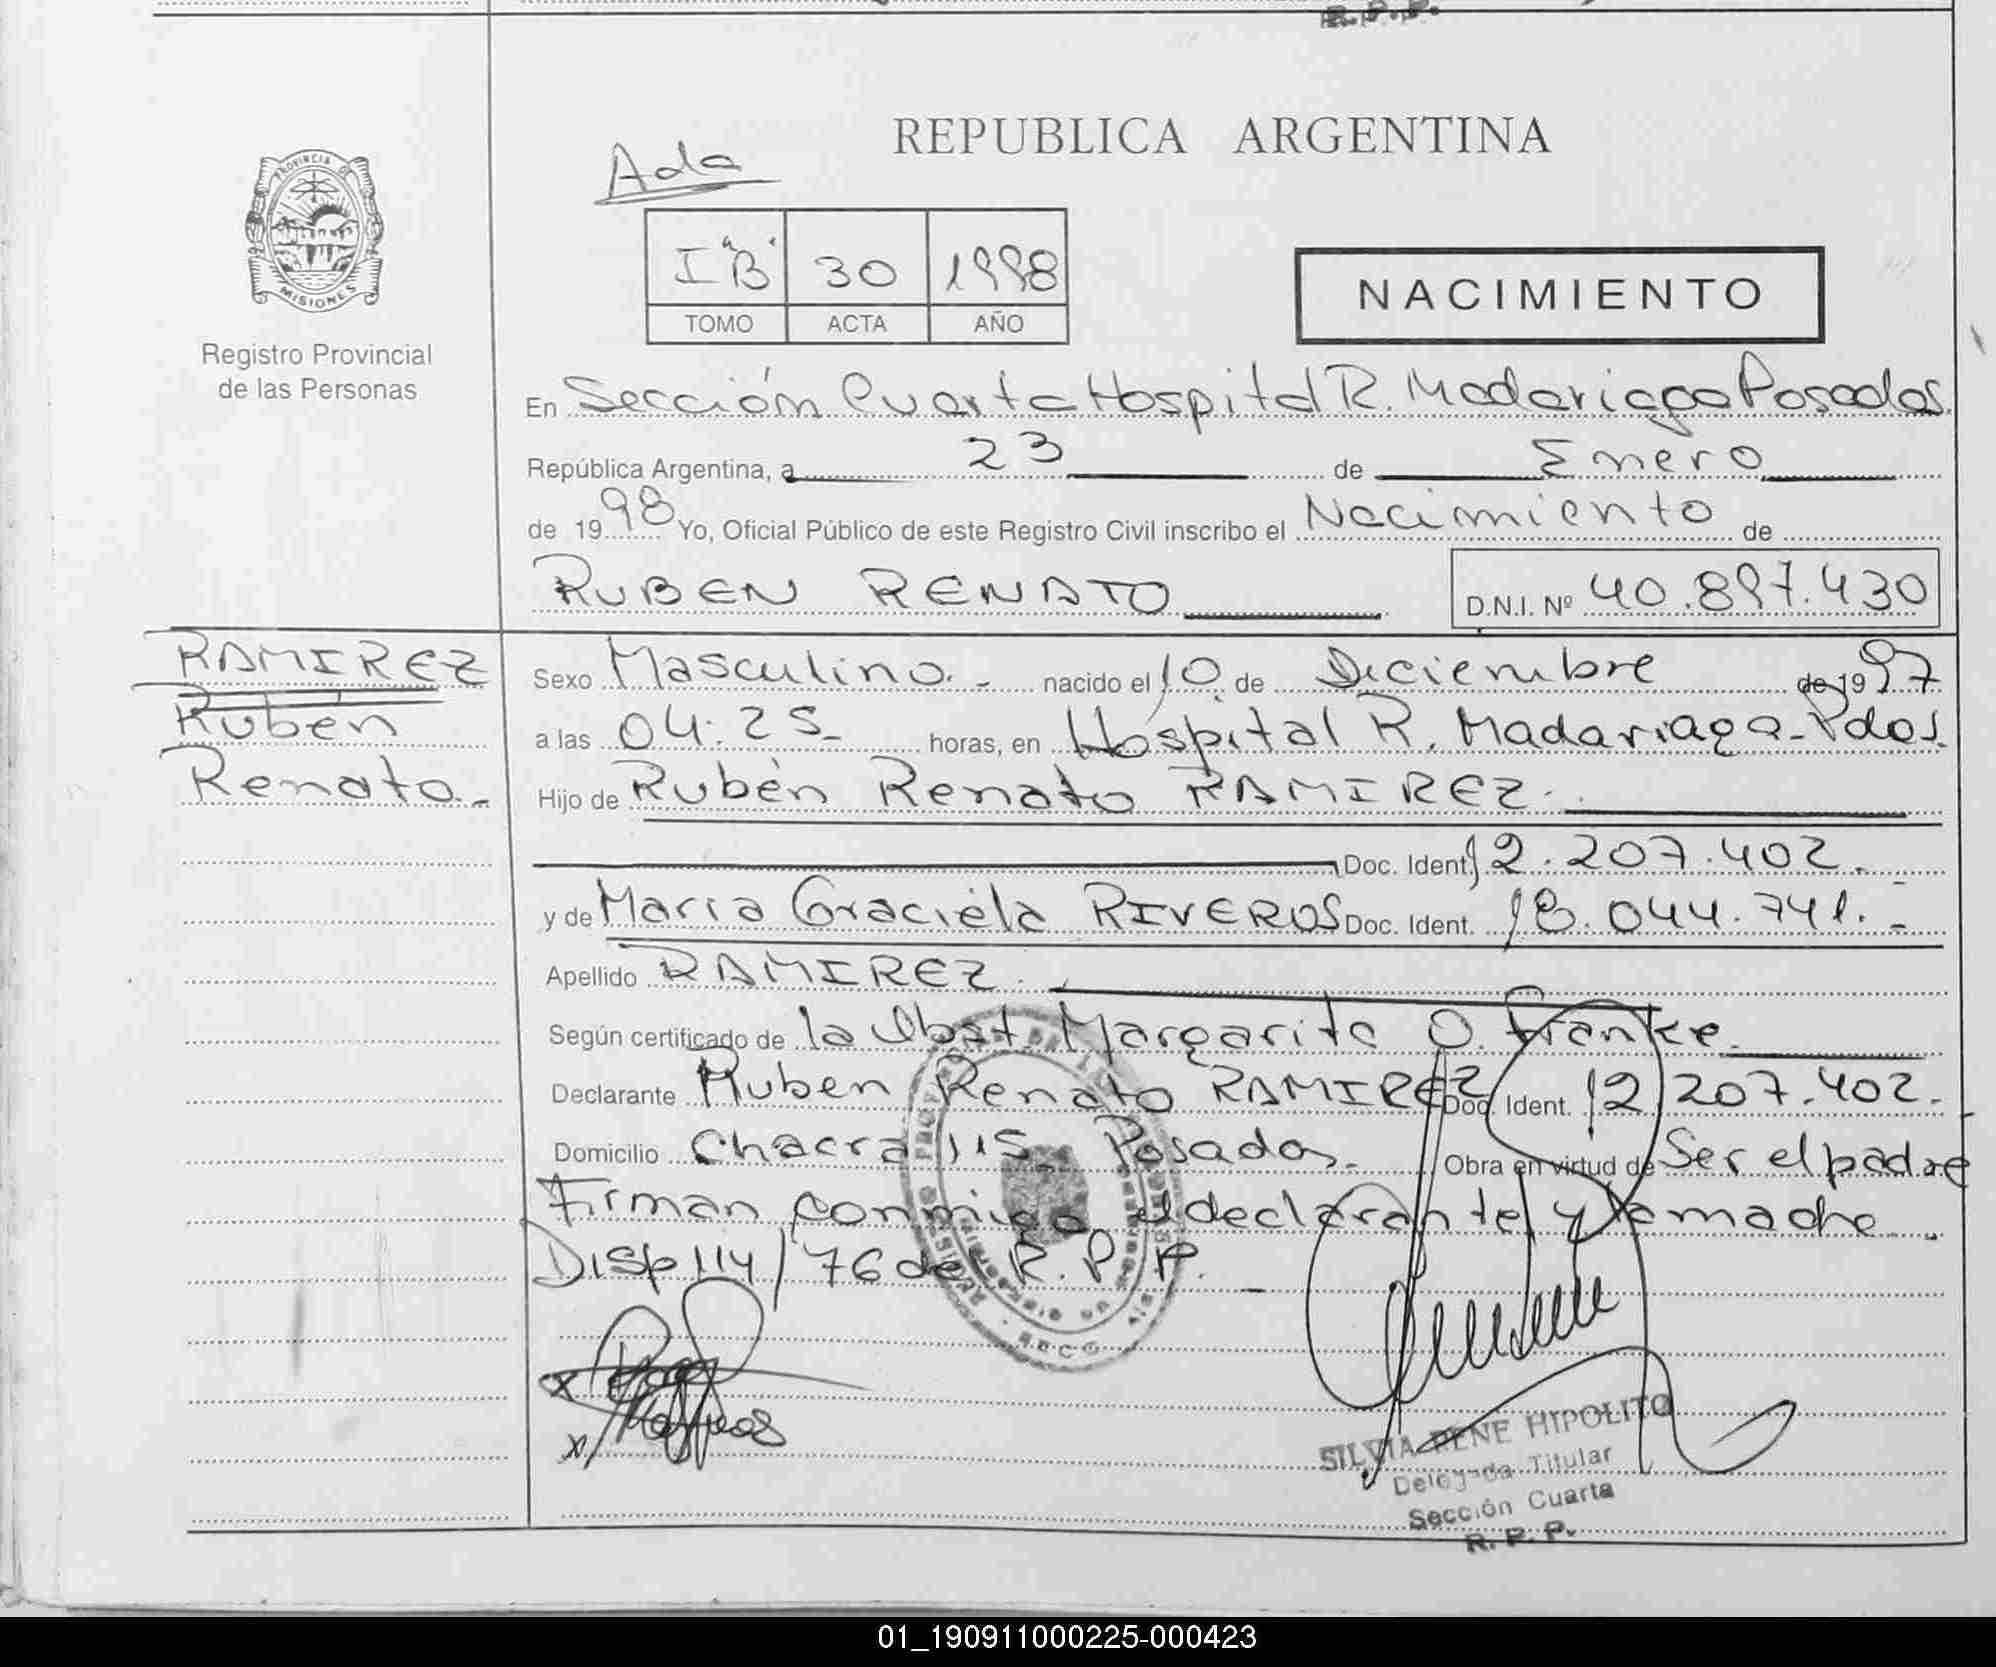 R.P.P.
REPUBLICA ARGENTINA
Ada
PROVINCIA DE
MISIONES
I "B" 30 1998
TOMO ACTA AÑO
NACIMIENTO
Registro Provincial
de las Personas
En Sección Cuarta Hospital R. Madariaga Posadas.
República Argentina, a 23 de Enero
de 1998 Yo, Oficial Público de este Registro Civil inscribo el Nacimiento de
RUBEN RENATO D.N.I. Nº 40.897.430
RAMIREZ
Ruben
Renato.-
Sexo Masculino.- nacido el 10 de Diciembre de 1997
a las 04:25- horas, en Hospital R. Madariaga-Pdas.
Hijo de Rubén Renato RAMIREZ.
Doc. Ident. 12.207.402.-
y de Maria Graciela RIVEROS Doc. Ident. 18.044.741.-
Apellido RAMIREZ.
Según certificado de la Obst. Margarita O. Franke.
Declarante Ruben Renato RAMIREZ Doc. Ident. 12 207.402.-
Domicilio Chacra 115. Posadas. Obra en virtud de Ser el padre
Firman conmigo el declarante y la madre.
Disp 114/76 del R.P.P. -
SILVIA RENE HIPOLITO
Delegada Titular
Sección Cuarta
R.P.P.
01_190911000225-000423